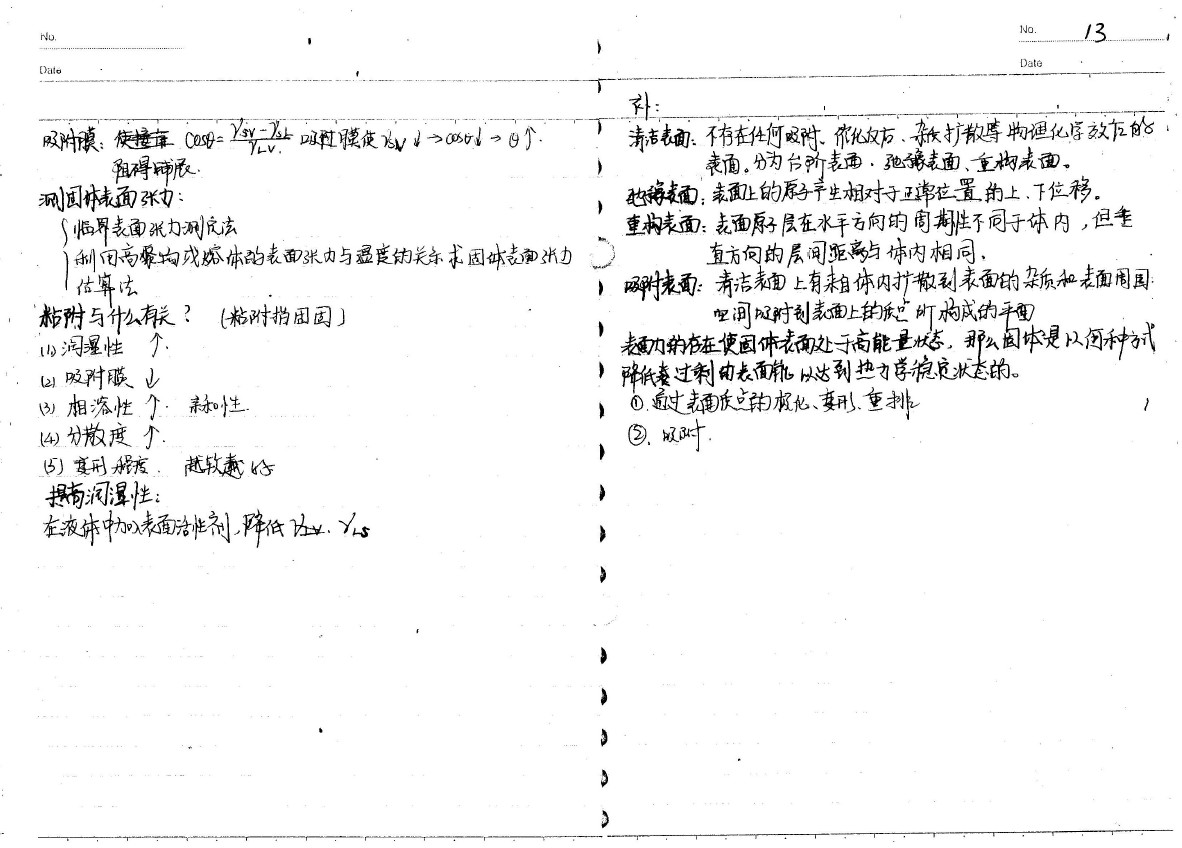 No.
Date
吸附膜: cosθ = (γsv − γsL)/γLv 吸附膜使γsv↓→cosθ↓→θ↑.
阻碍铺展.
测固体表面张力:
临界表面张力测定法
利用高聚物或熔体的表面张力与温度的关系求固体表面张力
估算法
粘附与什么有关?
(1) 润湿性 ↑.
(2) 吸附膜 ↓
(3) 相溶性 ↑. 亲和性.
(4) 分散度 ↑.
(5) 变形程度. 越软越好
提高润湿性:
在液体中加入表面活性剂,降低γLv. γLS
No. 13
Date
补:
清洁表面: 不存在任何吸附、催化反应、杂质扩散等物理化学效应的
表面。分为台阶表面、弛豫表面、重构表面。
弛豫表面: 表面上的原子产生相对于正常位置的上、下位移。
重构表面: 表面原子层在水平方向的周期性不同于体内,但垂
直方向的层间距离与体内相同.
吸附表面: 清洁表面上有来自体内扩散到表面的杂质和表面周围
空间吸附到表面上的质点所构成的平面
表面力的存在使固体表面处于高能量状态,那么固体是以何种方式
降低过剩的表面能以达到热力学稳定状态的。
①.通过表面质点的极化、变形、重排
②. 吸附.